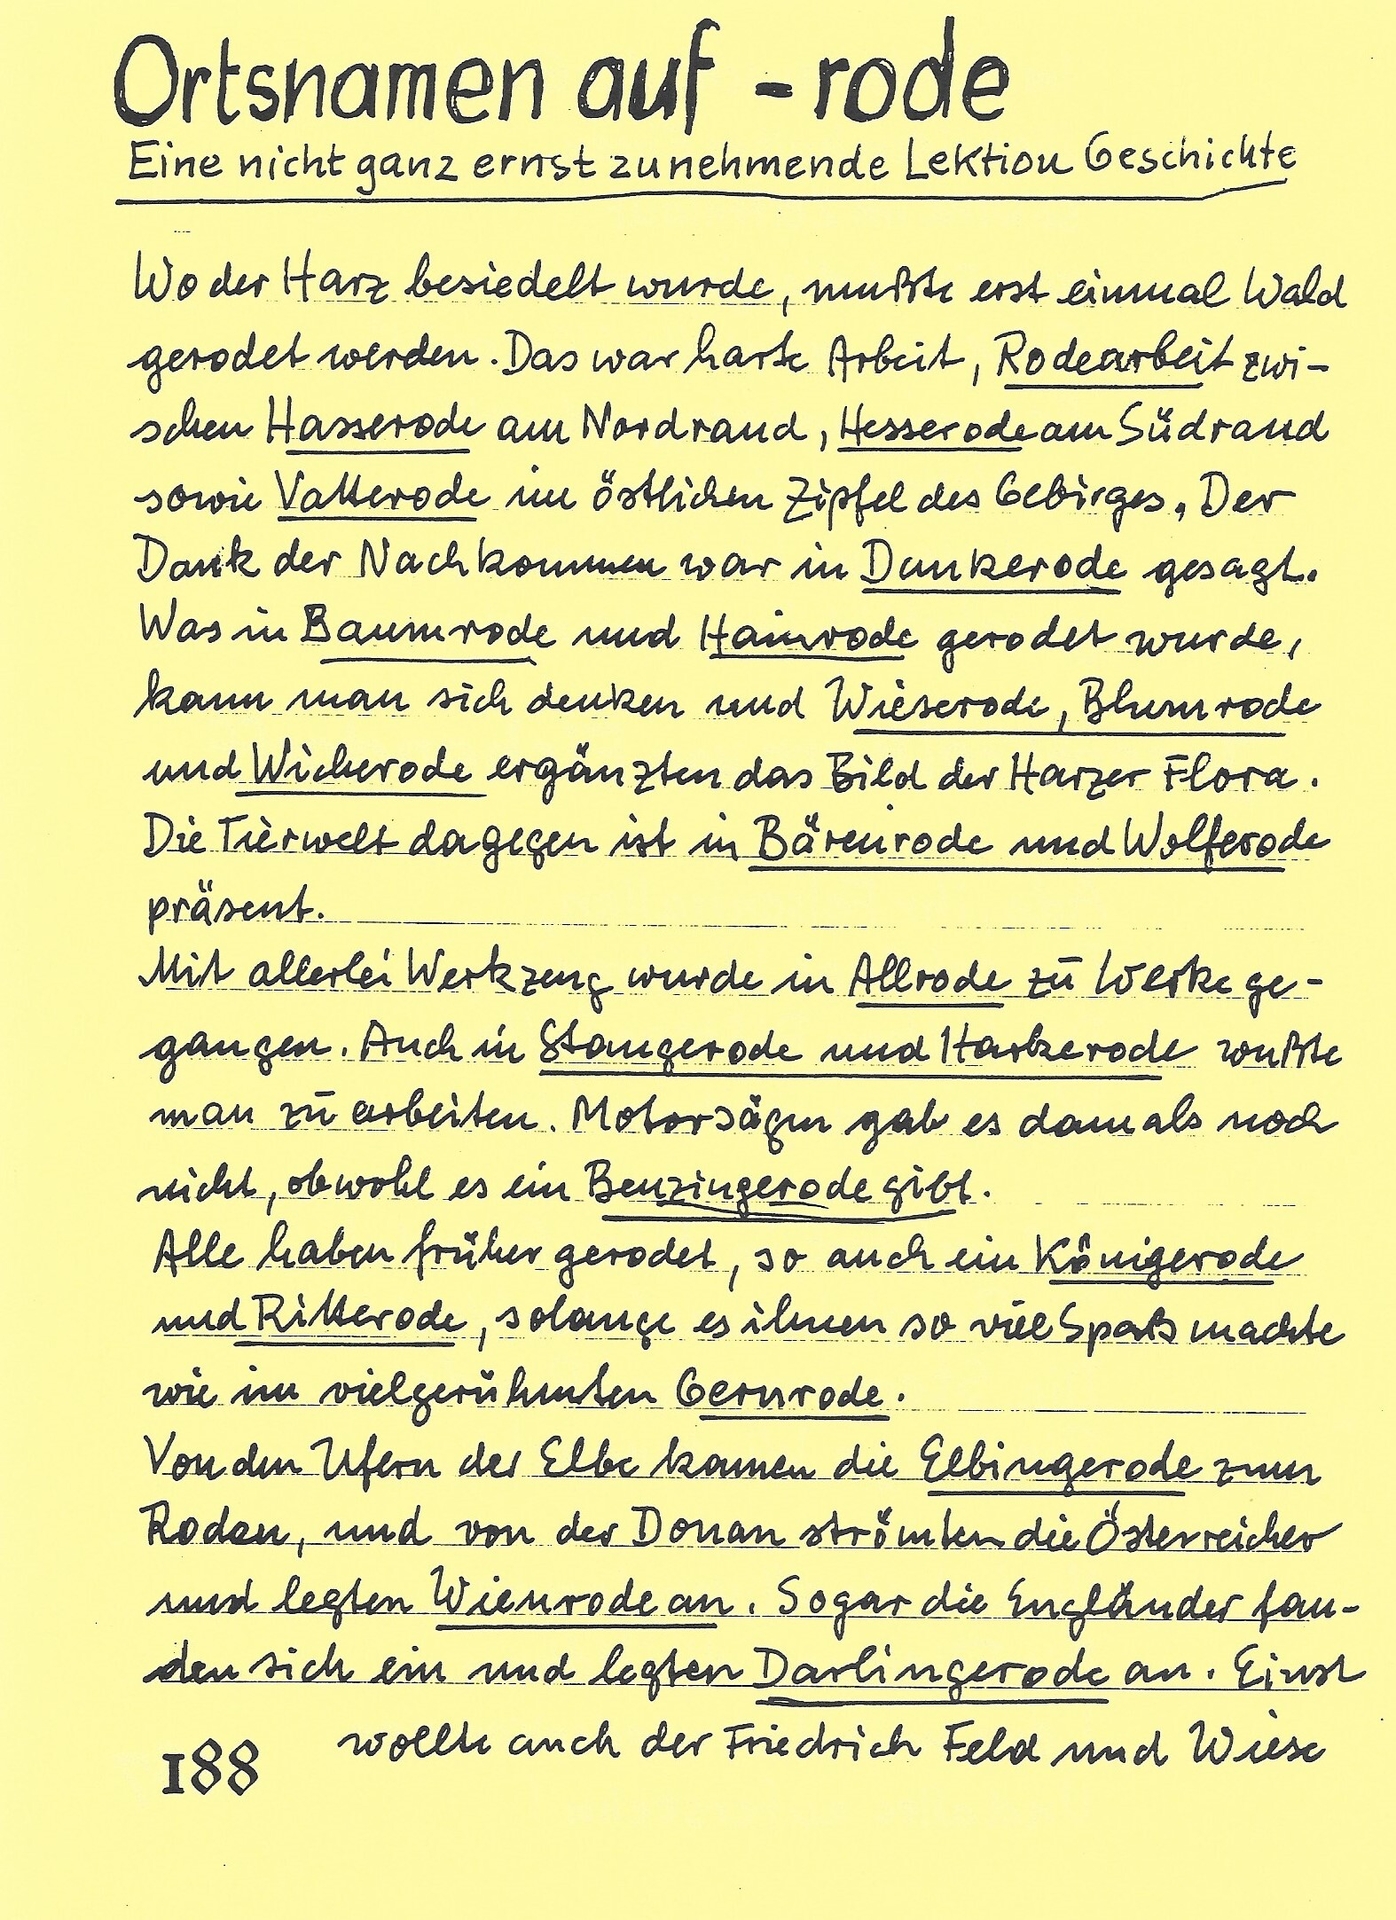 Ortsnamen auf -rode
Eine nicht ganz ernst zu nehmende Lektion Geschichte
Wo der Harz besiedelt wurde, mußte erst einmal Wald
gerodet werden. Das war harte Arbeit, Rodearbeit zwi-
schen Hasserode am Nordrand, Hesserode am Südrand
sowie Vatterode im östlichen Zipfel des Gebirges. Der
Dank der Nachkommen war in Dankerode gesagt.
Was in Baumrode und Hainrode gerodet wurde,
kann man sich denken und Wieserode, Blumrode
und Wickerode ergänzten das Bild der Harzer Flora.
Die Tierwelt dagegen ist in Bärenrode und Wolferode
präsent.
Mit allerlei Werkzeug wurde in Allrode zu Werke ge-
gangen. Auch in Stangerode und Harkerode wußte
man zu arbeiten. Motorsägen gab es damals noch
nicht, obwohl es ein Benzingerode gibt.
Alle haben früher gerodet, so auch ein Königerode
und Ritterode, solange es ihnen so viel Spaß machte
wie im vielgerühmten Gernrode.
Von den Ufern der Elbe kamen die Elbingerode zum
Roden, und von der Donau strömten die Österreicher
und legten Wienrode an. Sogar die Engländer fan-
den sich ein und legten Darlingerode an. Einst
wollte auch der Friedrich Feld und Wiese
188